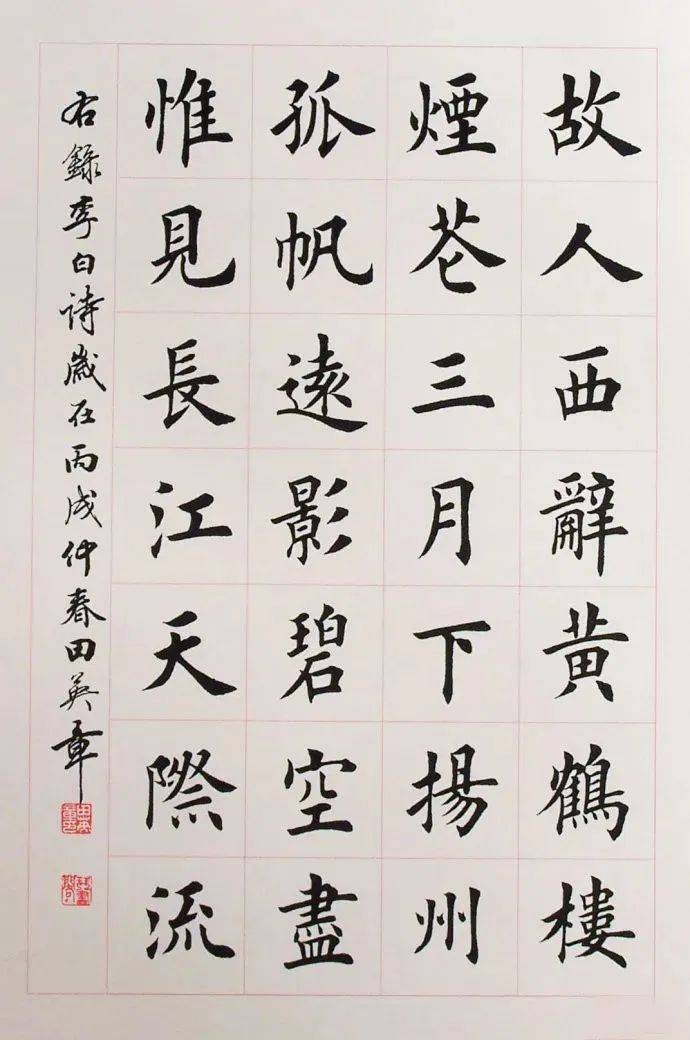 故人西辭黄鶴樓
煙花三月下揚州
孤帆遠影碧空盡
惟見長江天際流
右録李白詩歲在丙戌仲春田英章